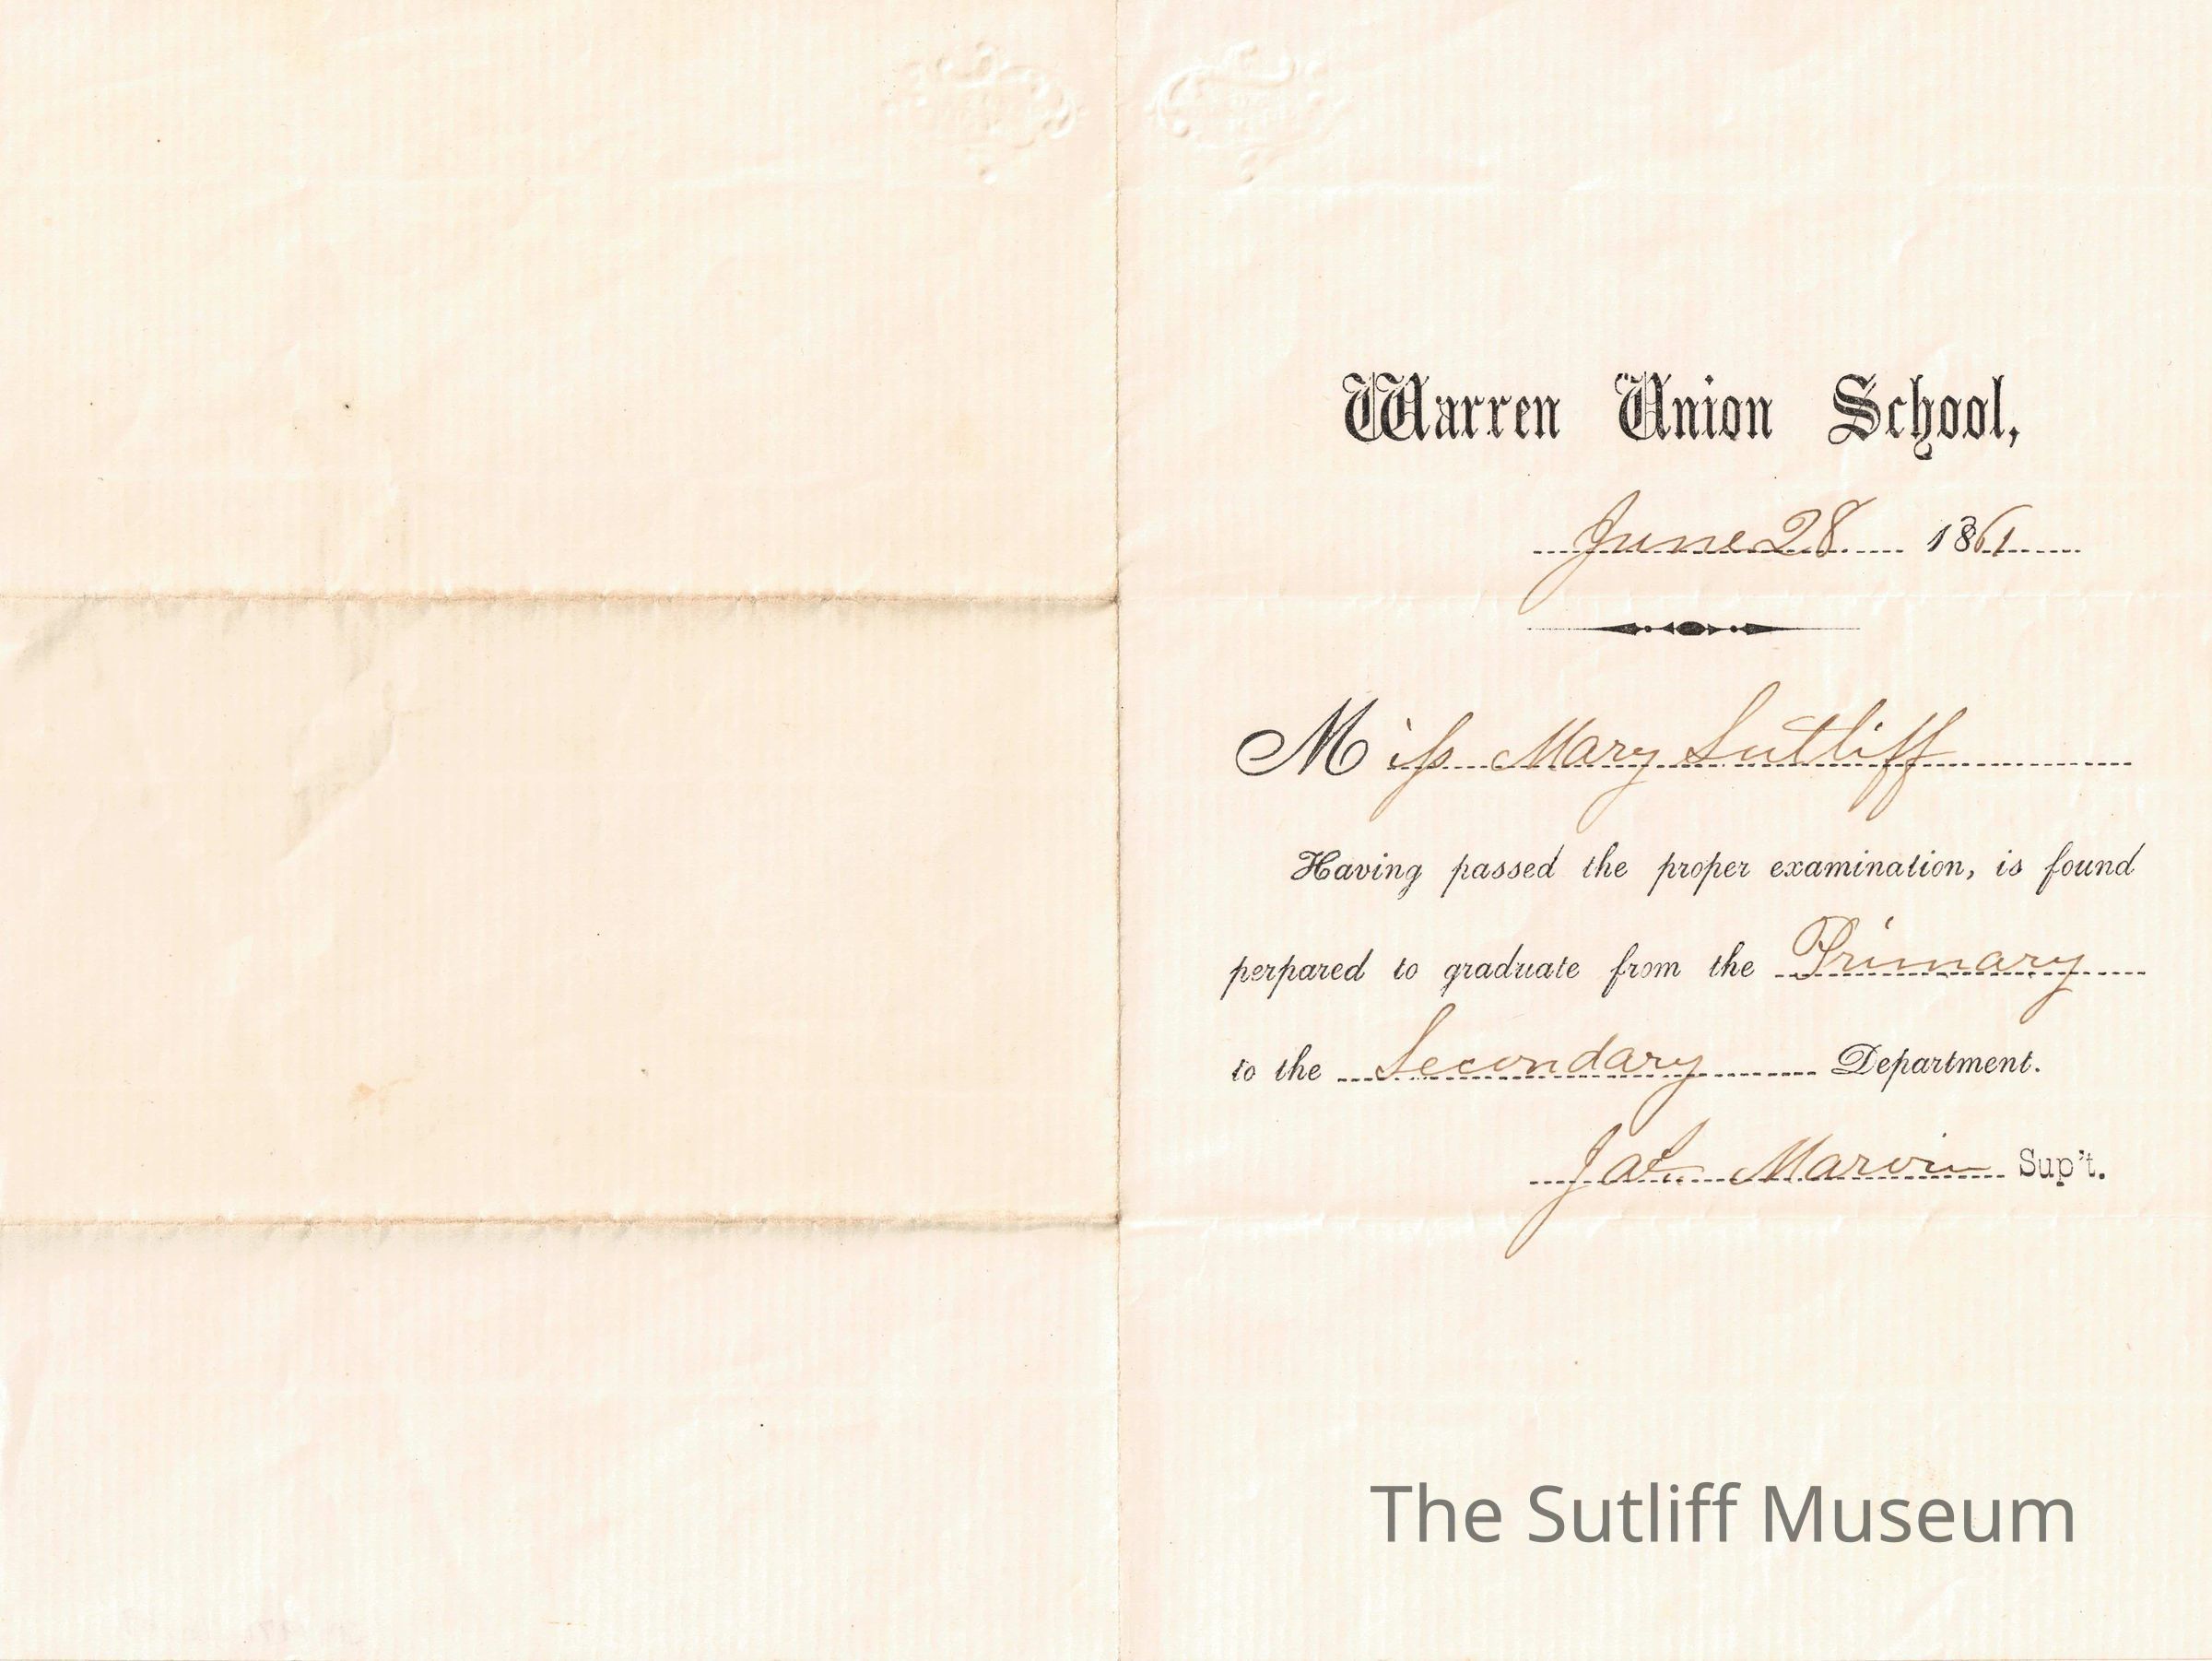 Warren Union School,
June 28 1861
Miss Mary Sutliff
Having passed the proper examination, is found
perpared to graduate from the Primary
to the Secondary Department.
Jas. Marvin Sup't.
The Sutliff Museum